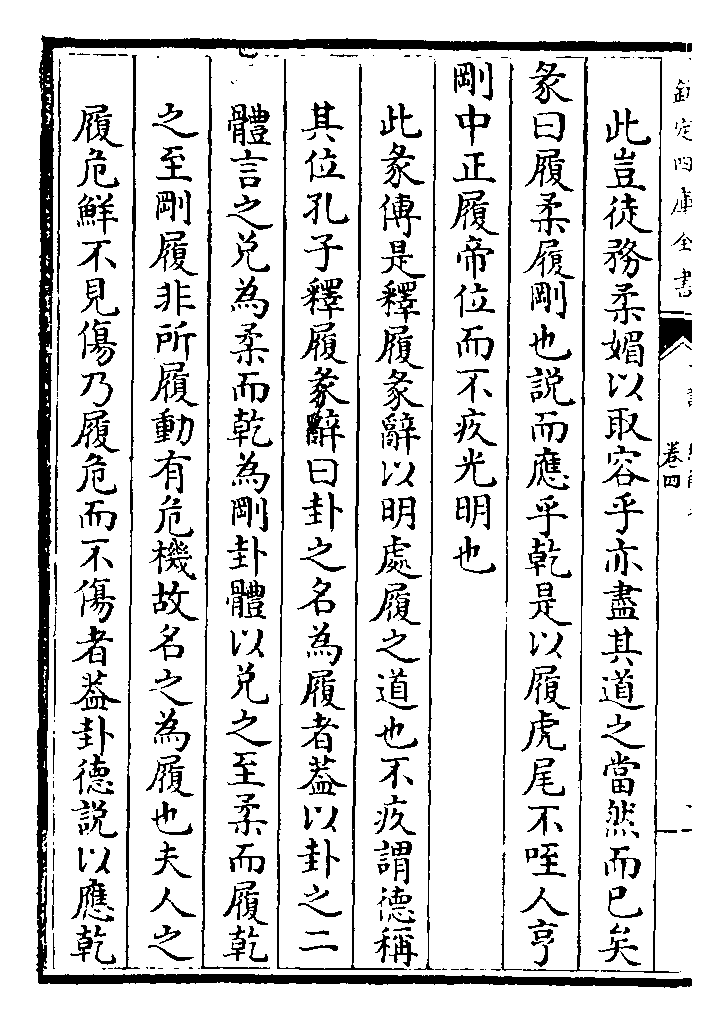 欽定四庫全書
卷四
此豈徒務柔媚以取容乎亦盡其道之當然而已矣
彖曰履柔履剛也說而應乎乾是以履虎尾不咥人亨
剛中正履帝位而不疚光明也
此彖傳是釋履彖辭以明處履之道也不疚謂德稱
其位孔子釋履彖辭曰卦之名為履者葢以卦之二
體言之兌為柔而乾為剛卦體以兌之至柔而履乾
之至剛履非所履動有危機故名之為履也夫人之
履危鮮不見傷乃履危而不傷者葢卦德說以應乾